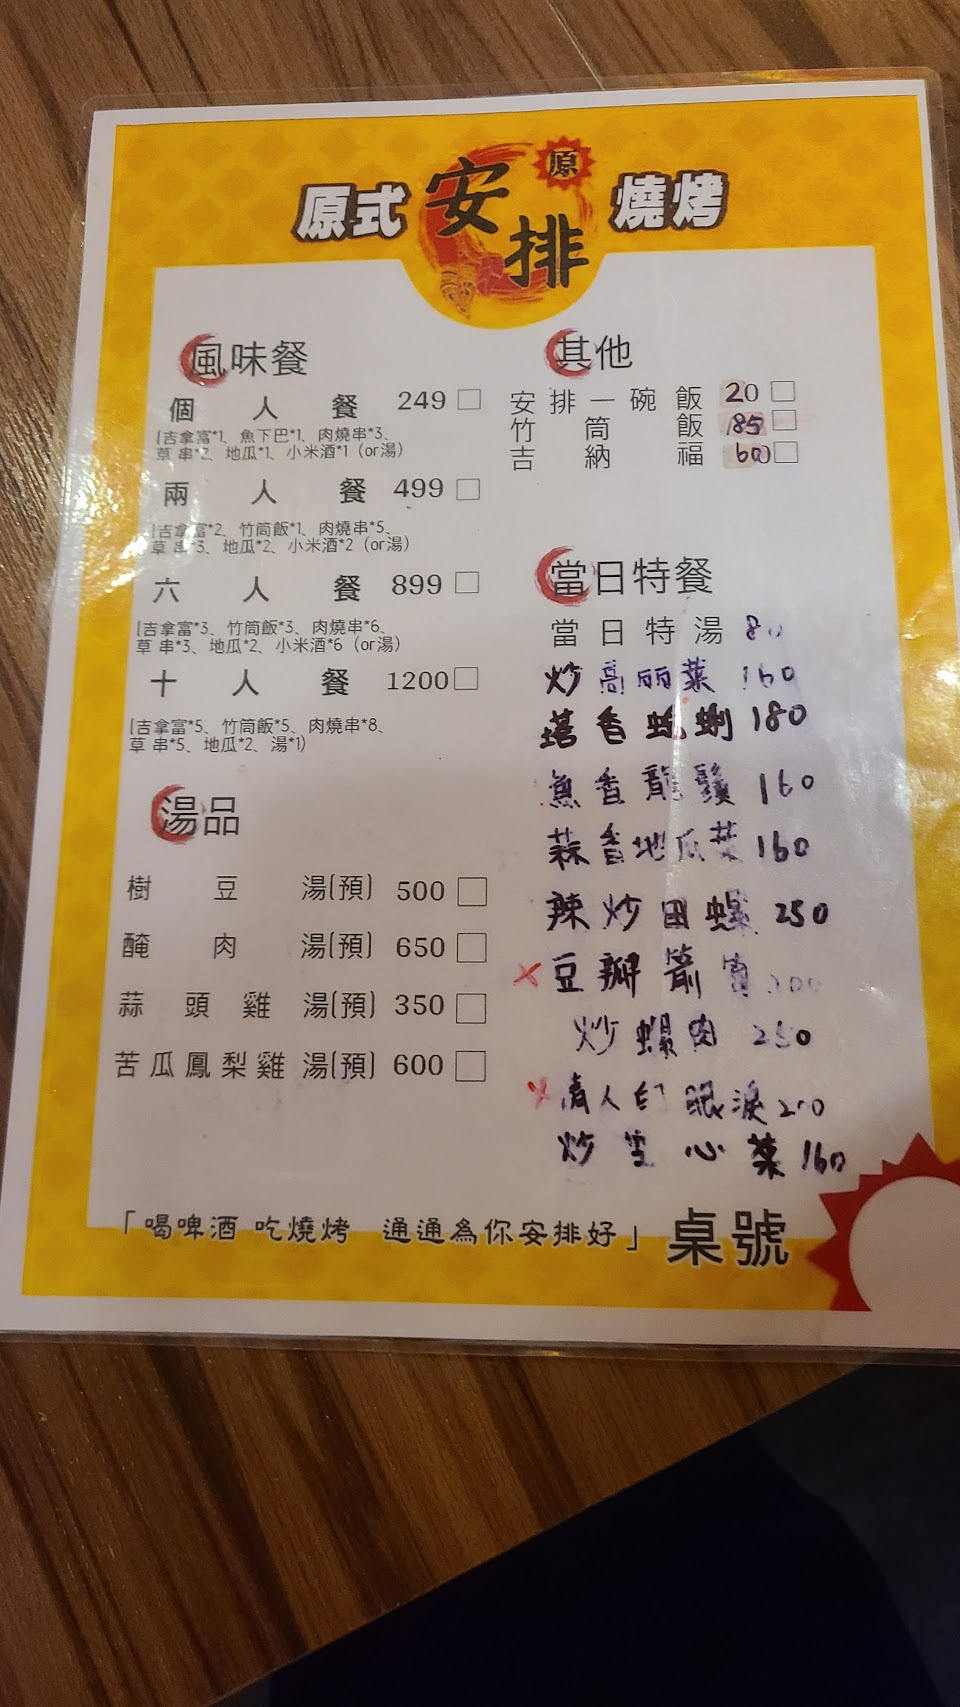 原式 安排 原 燒烤
風味餐
個人餐 249
(吉拿富*1、魚下巴*1、肉燒串*3、
草 串*2、地瓜*1、小米酒*1 (or湯)
兩人餐 499
(吉拿富*2、竹筒飯*1、肉燒串*5、
草 串*3、地瓜*2、小米酒*2 (or湯)
六人餐 899
(吉拿富*3、竹筒飯*3、肉燒串*6、
草 串*3、地瓜*2、小米酒*6 (or湯)
十人餐 1200
(吉拿富*5、竹筒飯*5、肉燒串*8、
草 串*5、地瓜*2、湯*1)
湯品
樹豆湯(預) 500
醃肉湯(預) 650
蒜頭雞湯(預) 350
苦瓜鳳梨雞湯(預) 600
其他
安排一碗飯 20
竹筒飯 185
吉納福 60
當日特餐
當日特湯 80
炒高丽菜 160
塔香蜆蜊 180
魚香龍鬚 160
蒜香地瓜菜 160
辣炒田螺 250
✗豆瓣箭筍
炒螺肉 250
✗情人的眼淚 200
炒空心菜 160
「喝啤酒 吃燒烤 通通為你安排好」
桌號